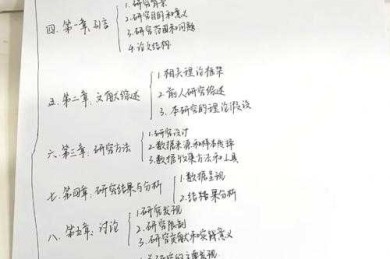 1.研究背景
2.研究目的和意义
四.第一章.引言
3.研究范围和问题
4.论文结构
1.相关理论框架
五.第二章.文献综述
2.前人研究综述
3.本研究的理论假设
1.研究设计
六.第三章.研究方法
2.数据来源和样本选择
3.数据收集方法和工具
七.第四章.研究结果与分析
1.数据呈现
2.结果分析
1.研究发现
八.第五章.讨论
2.研究限制
3.研究贡献和实践意义